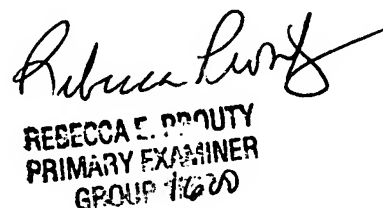 Rebecca Prouty
REBECCA E. PROUTY
PRIMARY EXAMINER
GROUP 1600